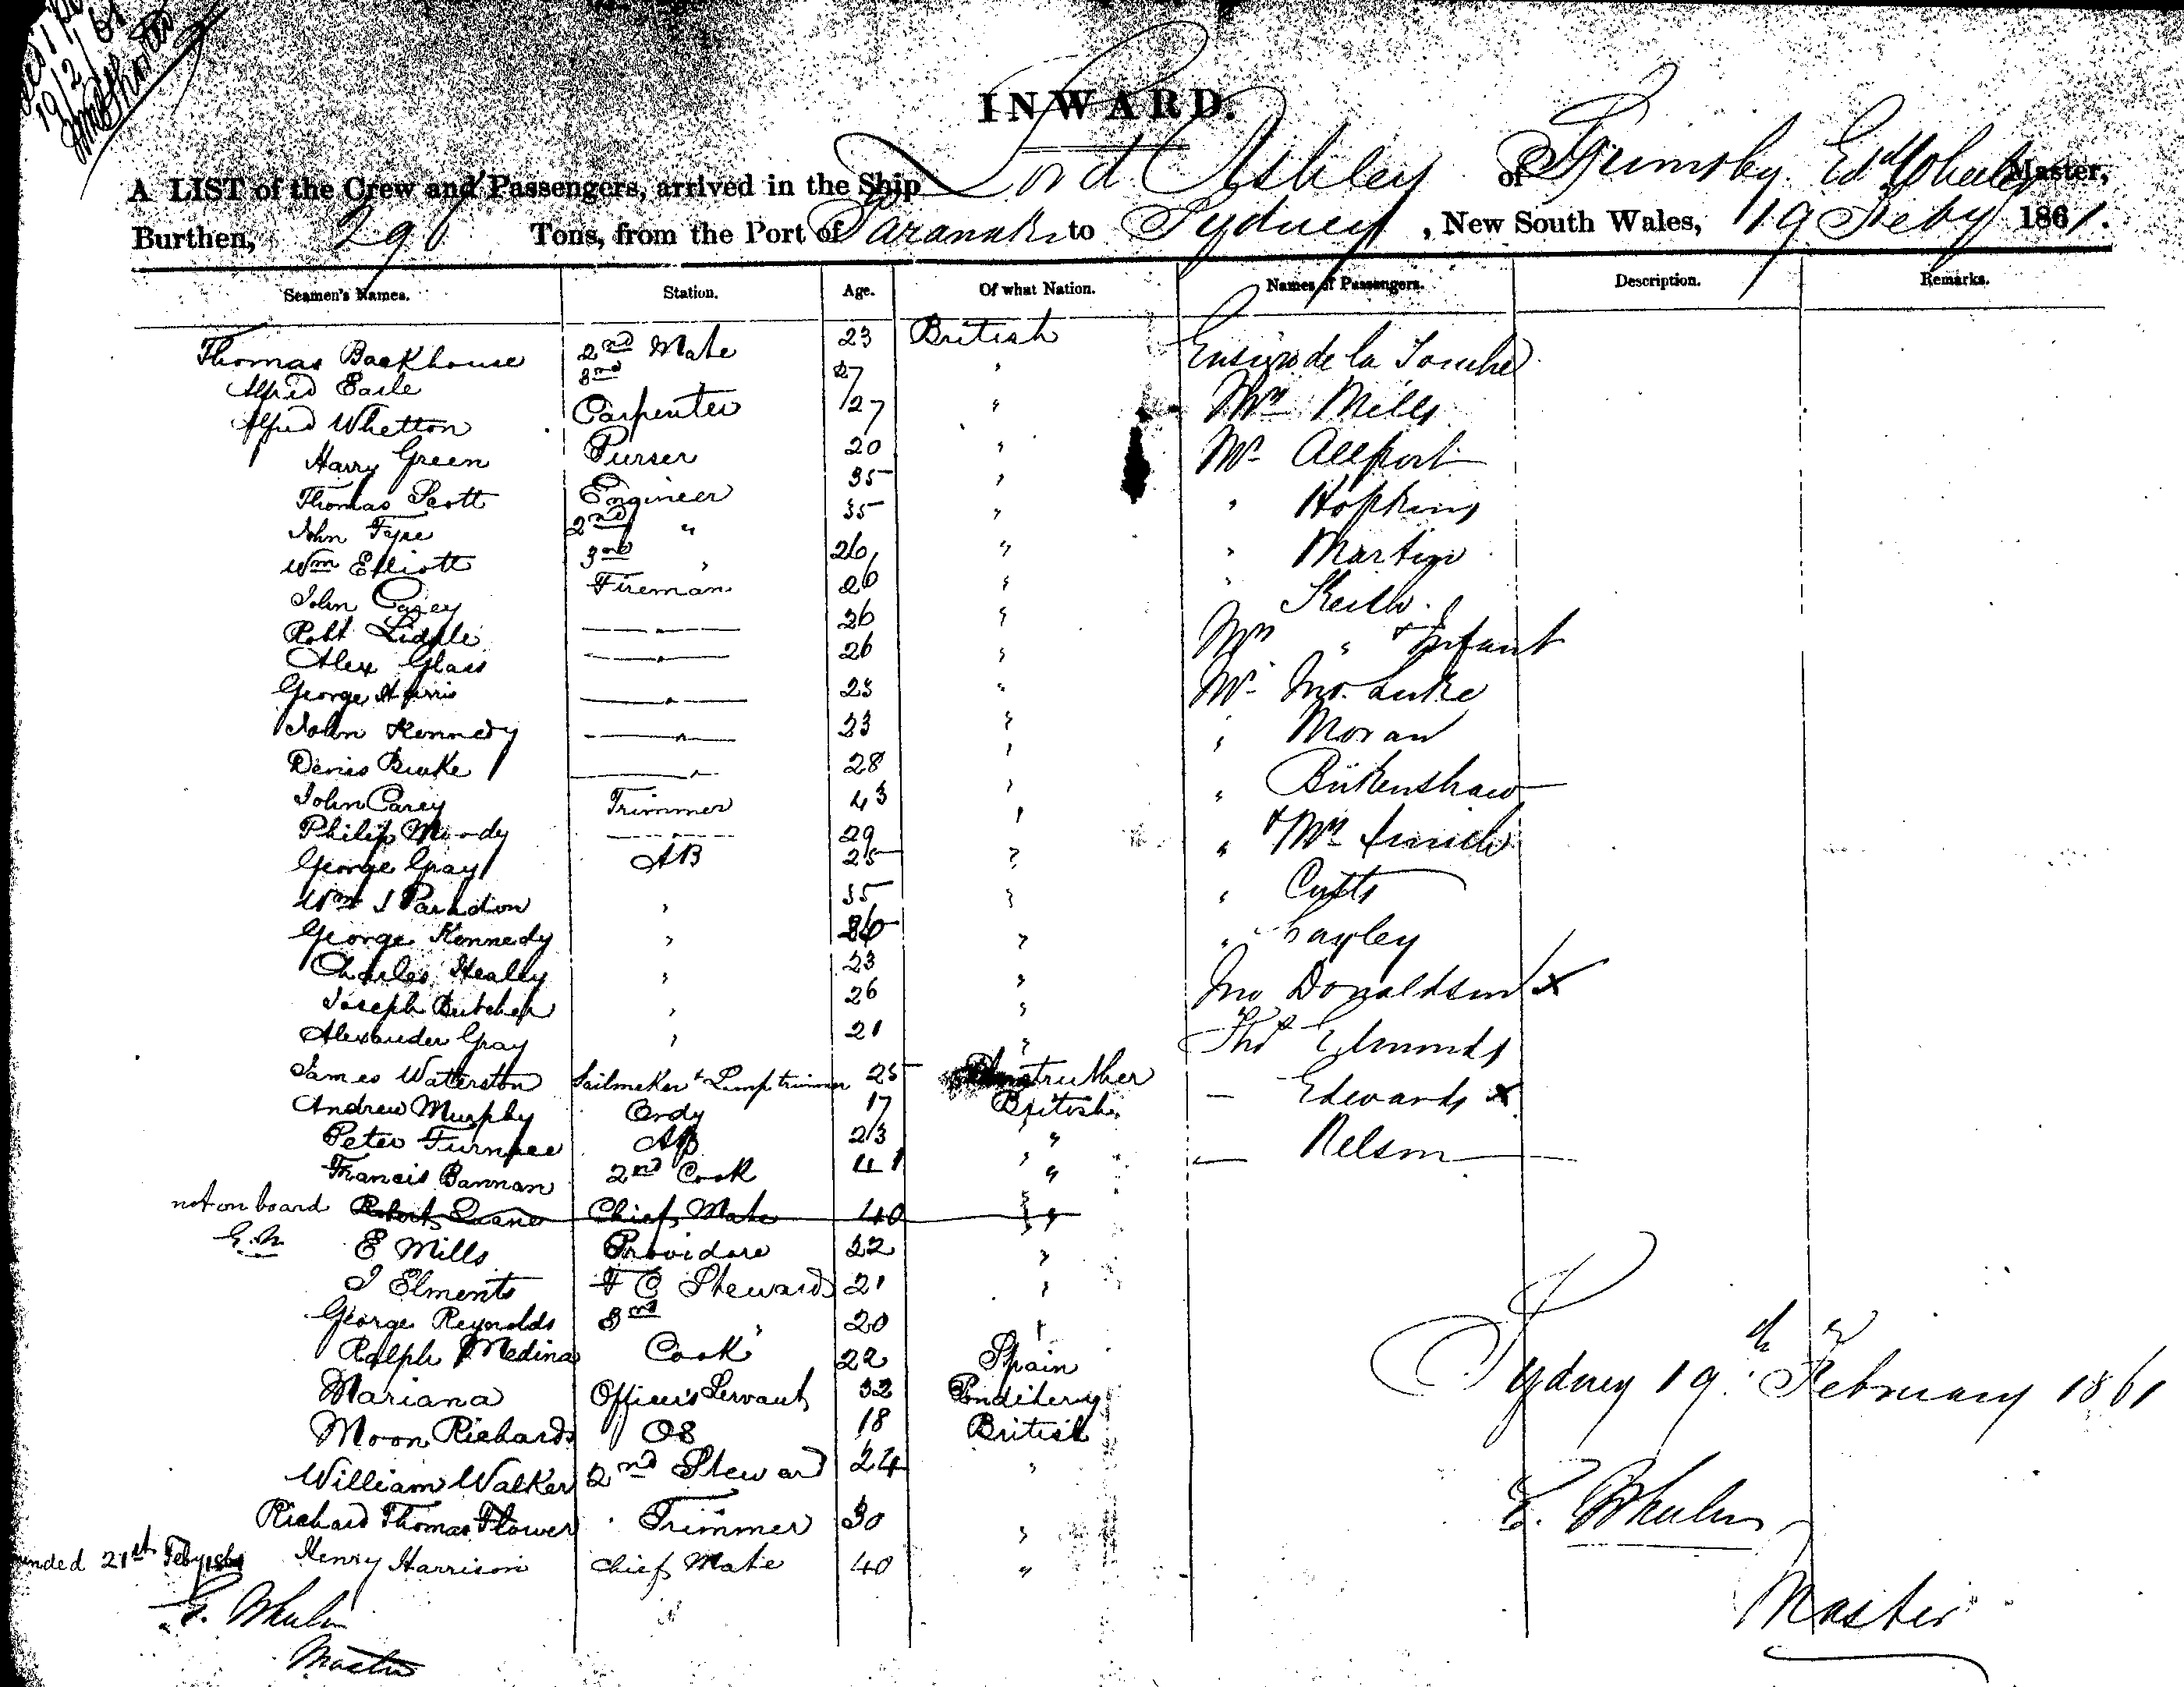 19/2/61
INWARD.
A LIST of the Crew and Passengers, arrived in the Ship Lord Ashley of Grimsby Edd Wheeler Master,
Burthen, 296 Tons, from the Port of Taranaki to Sydney, New South Wales, 19 Feby 1861.
Seamen's Names. Station. Age. Of what Nation. Names of Passengers. Description. Remarks.
Thomas Backhouse 2nd Mate 23 British Ensign de la Touche
Alfred Earle 3rd " 27 " Mrs Mills
Alfred Whetton Carpenter 27 " Mr Allport
Harry Green Purser 20 " " Hopkins
Thomas Scott Engineer 35 " " Martin
John Fyfe 2nd " 35 " " Keith
Wm Elliott 3rd " 26 " Mrs " & Infant
John Casey Fireman 26 " Mr Jno. Luke
Robt Liddle " 26 " " Moran
Alex Glass " 26 " " Birkenshaw
George Harris " 23 " " & Mrs
John Kennedy " 23 " " Cutts
Denis Burke " 28 " " Bayley
John Carey Trimmer 43 " Jno Donaldson x
Philip Moody " 29 " Thos Edmonds
George Gray AB 25 " — Edwards x
Wm J Parndon " 35 " — Nelson
George Kennedy " "
Charles Healey " 23 "
Joseph Butcher " 26 "
Alexander Gray " 21 "
James Waterston Sailmaker & Lamp trimmer 25 Anstruther
Andrew Murphy Ordy 17 British
Peter Furnace AB 23 "
Francis Bannan 2nd Cook 41 "
not on board Robert Quane Chief Mate 40 "
E Mills Providore 22 "
J Elments F C Steward 21 "
George Reynolds 3rd " 20 "
Ralph Medina Cook 22 Spain
Mariana Officers Servant 32 Pondicherry
Moon Richards OS 18 British
William Walker 2nd Steward 24 "
Richard Thomas Flower Trimmer 30 "
21st Feby 1861 Henry Harrison Chief Mate 40 "
E. Wheeler
Master
Sydney 19th February 1861
E. Wheeler
Master